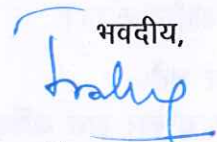 भवदीय,